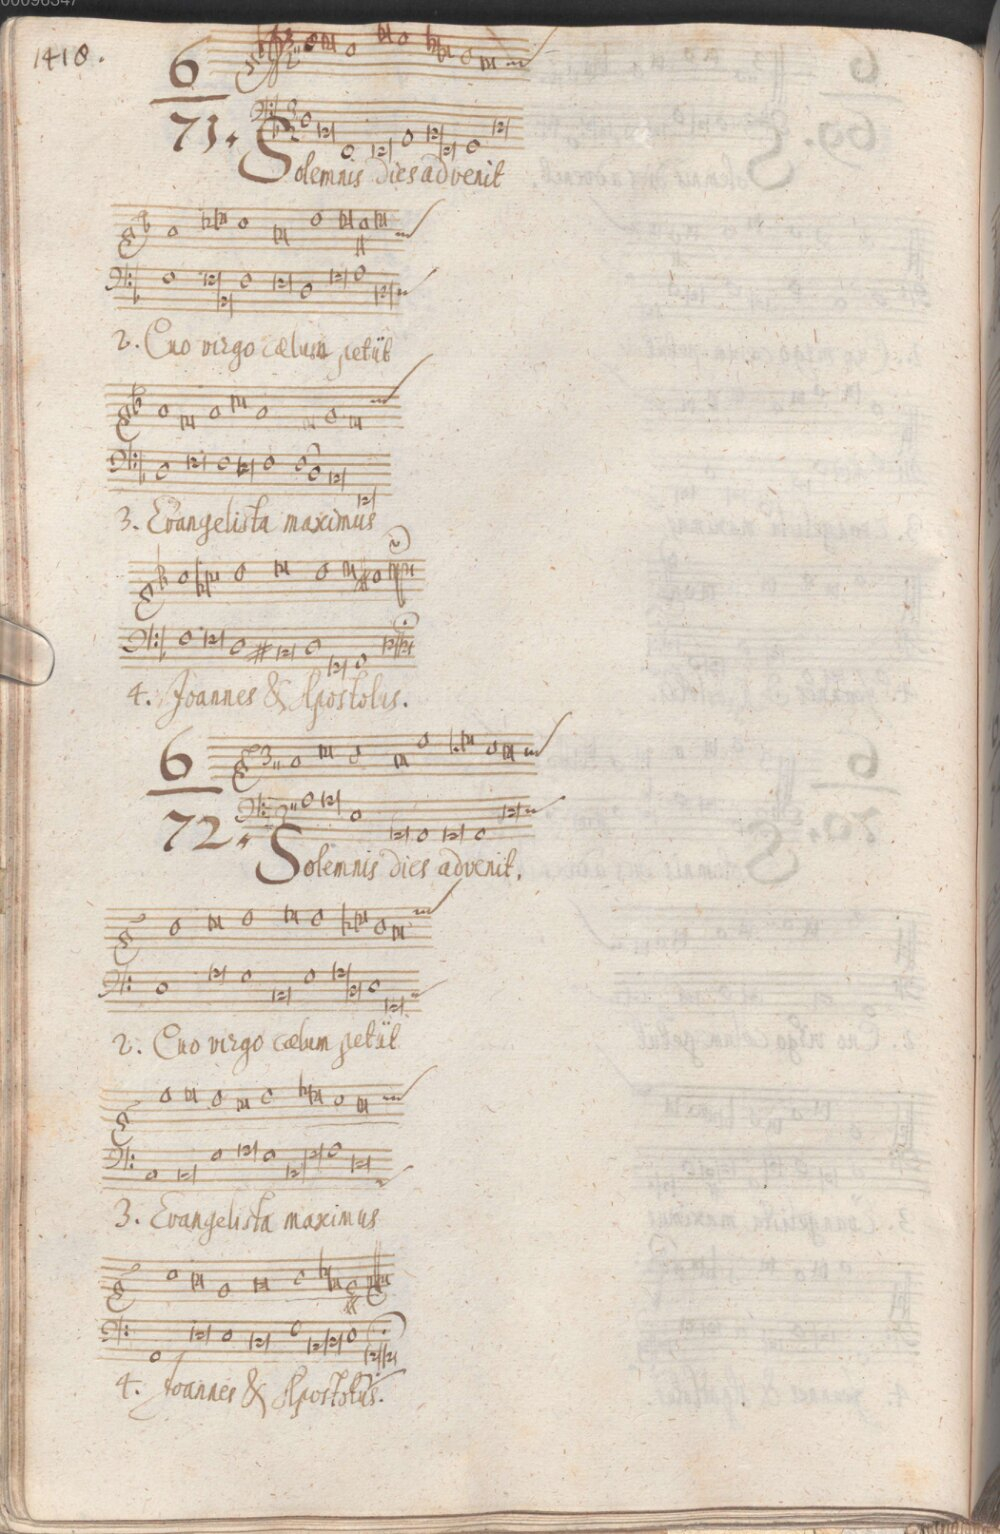 1410.
6
71.
Solemnis dies advenit
2. Quo virgo cælum petÿt
3. Evangelista maximus
4. Joannes & Apostolus.
6
72.
Solemnis dies advenit.
2. Quo virgo cælum petÿt
3. Evangelista maximus
4. Joannes & Apostolus.